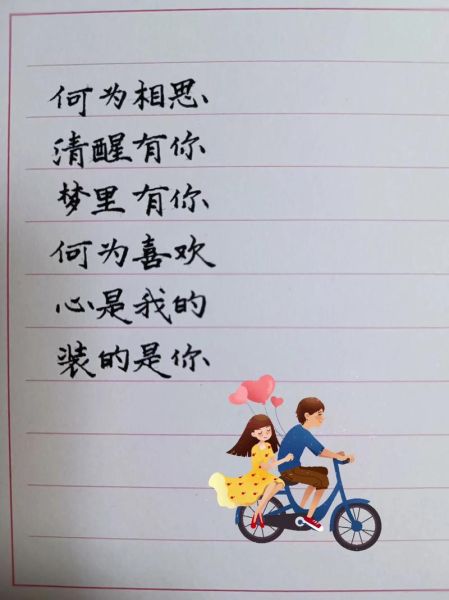 何为相思
清醒有你
梦里有你
何为喜欢
心是我的
装的是你